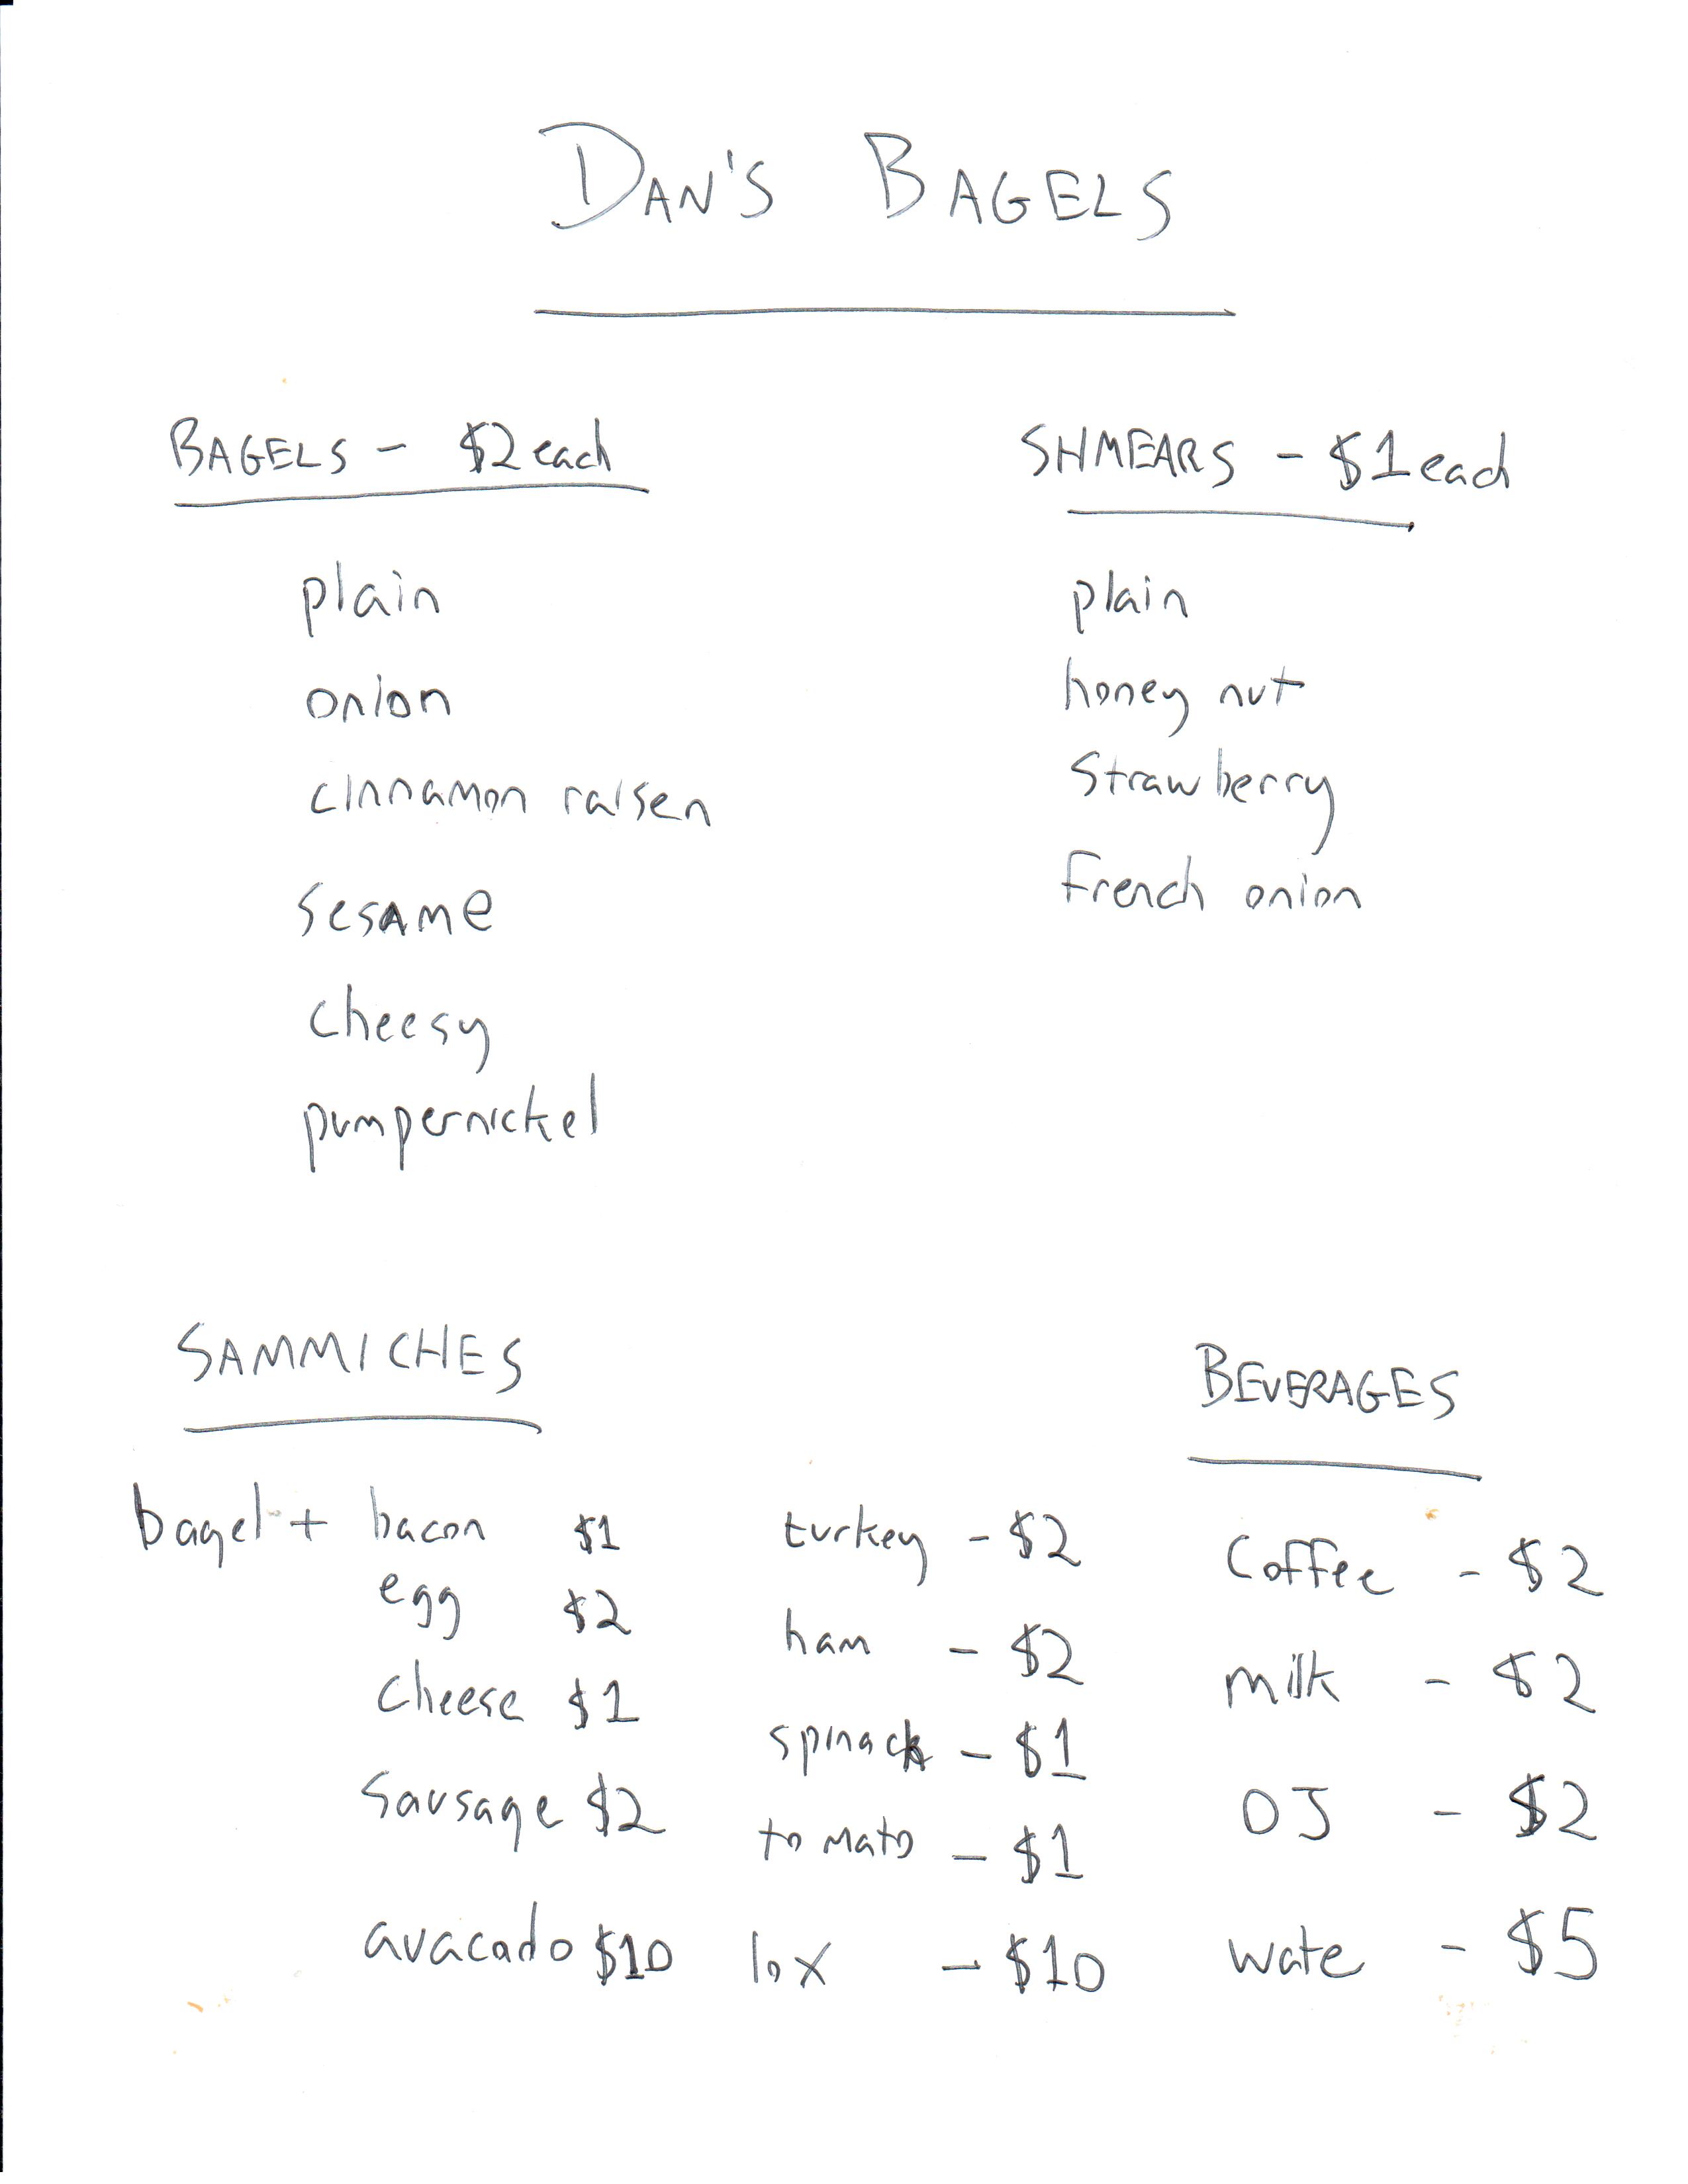 DAN'S BAGELS
BAGELS - $2 each
plain
onion
cinnamon raisen
sesame
cheesy
pumpernickel
SHMEARS - $1 each
plain
honey nut
strawberry
french onion
SAMMICHES
bagel + bacon $1
egg $2
cheese $1
sausage $2
avacado $10
turkey - $2
ham - $2
spinach - $1
tomato - $1
lox - $10
BEVERAGES
Coffee - $2
milk - $2
OJ - $2
wate - $5